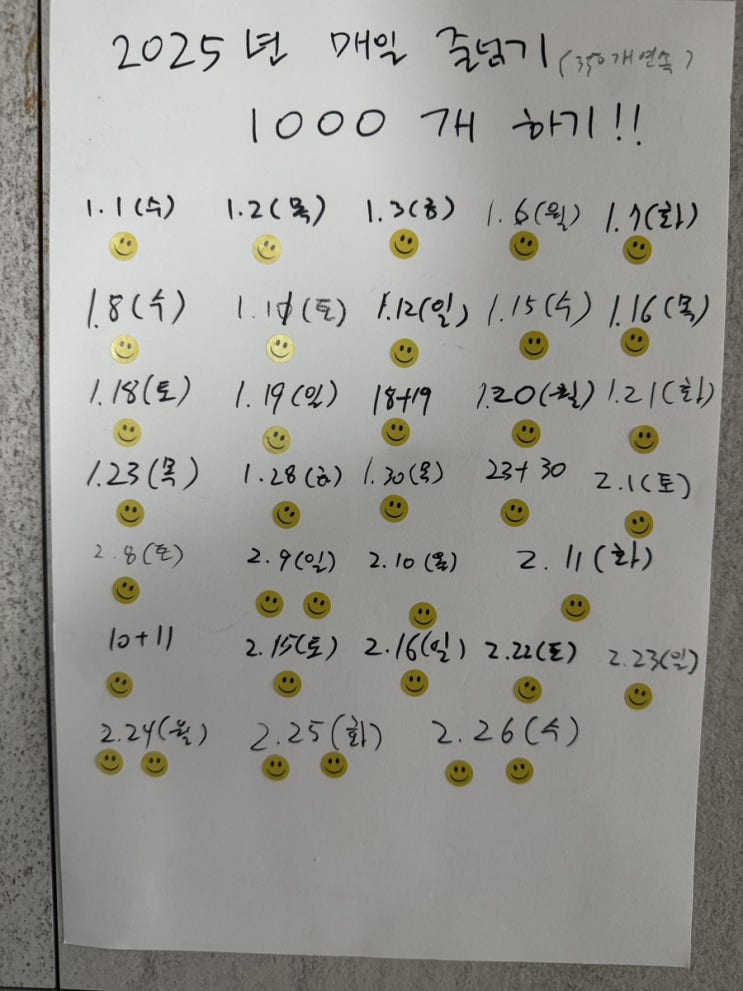 2025년 매일 줄넘기 (350개 연속)
1000개 하기!!
1.1(수) 1.2(목) 1.3(금) 1.6(월) 1.7(화)
1.8(수) 1.11(토) 1.12(일) 1.15(수) 1.16(목)
1.18(토) 1.19(일) 18+19 1.20(월) 1.21(화)
1.23(목) 1.28(화) 1.30(목) 23+30 2.1(토)
2.8(토) 2.9(일) 2.10(월) 2.11(화)
10+11 2.15(토) 2.16(일) 2.22(토) 2.23(일)
2.24(월) 2.25(화) 2.26(수)